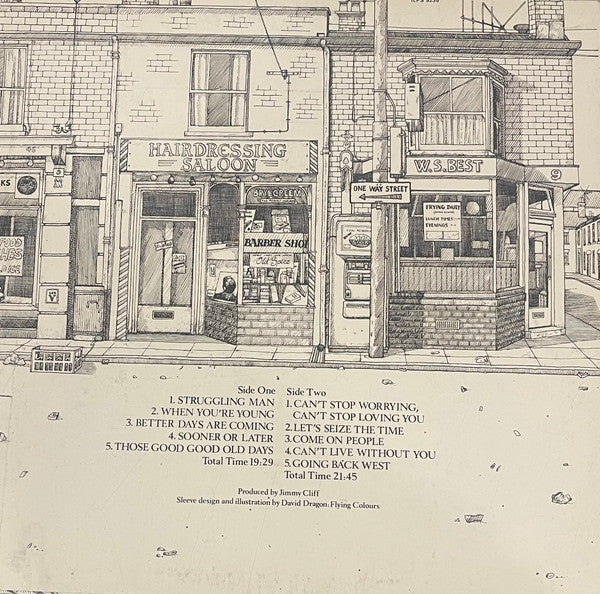 ILPS 9235
HAIRDRESSING
SALOON
BRYLCREEM
BARBER SHOP
Old Spice
W.S. BEST
9
ONE WAY STREET
FRYING DAILY
LUNCH TIMES
EVENINGS
Side One
1. STRUGGLING MAN
2. WHEN YOU'RE YOUNG
3. BETTER DAYS ARE COMING
4. SOONER OR LATER
5. THOSE GOOD GOOD OLD DAYS
Total Time 19:29
Side Two
1. CAN'T STOP WORRYING,
CAN'T STOP LOVING YOU
2. LET'S SEIZE THE TIME
3. COME ON PEOPLE
4. CAN'T LIVE WITHOUT YOU
5. GOING BACK WEST
Total Time 21:45
Produced by Jimmy Cliff
Sleeve design and illustration by David Dragon: Flying Colours